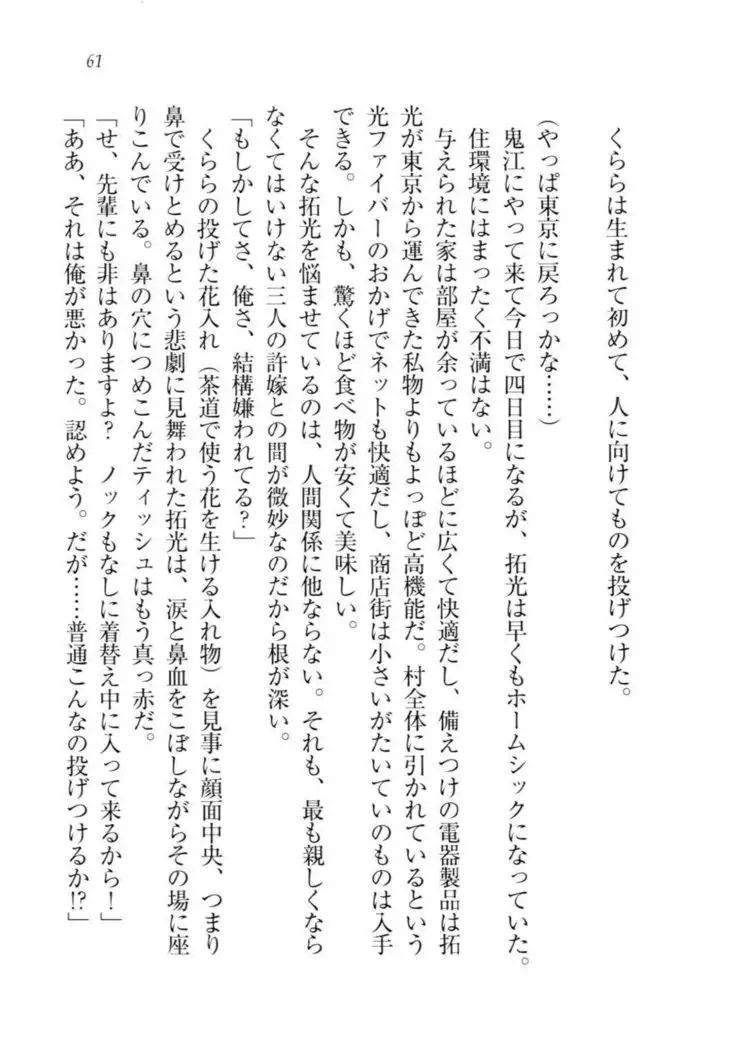 61
くららは生まれて初めて、人に向けてものを投げつけた。
(やっぱ東京に戻ろっかな……)
鬼江にやって来て今日で四日目になるが、拓光は早くもホームシックになっていた。
住環境にはまったく不満はない。
与えられた家は部屋が余っているほどに広くて快適だし、備えつけの電器製品は拓
光が東京から運んできた私物よりもよっぽど高機能だ。村全体に引かれているという
光ファイバーのおかげでネットも快適だし、商店街は小さいがたいていのものは入手
できる。しかも、驚くほど食べ物が安くて美味しい。
そんな拓光を悩ませているのは、人間関係に他ならない。それも、最も親しくなら
なくてはいけない三人の許嫁との間が微妙なのだから根が深い。
「もしかしてさ、俺さ、結構嫌われてる?」
くららの投げた花入れ(茶道で使う花を生ける入れ物)を見事に顔面中央、つまり
鼻で受けとめるという悲劇に見舞われた拓光は、涙と鼻血をこぼしながらその場に座
りこんでいる。鼻の穴につめこんだティッシュはもう真っ赤だ。
「せ、先輩にも非はありますよ? ノックもなしに着替え中に入って来るから!」
「ああ、それは俺が悪かった。認めよう。だが……普通こんなの投げつけるか!?」